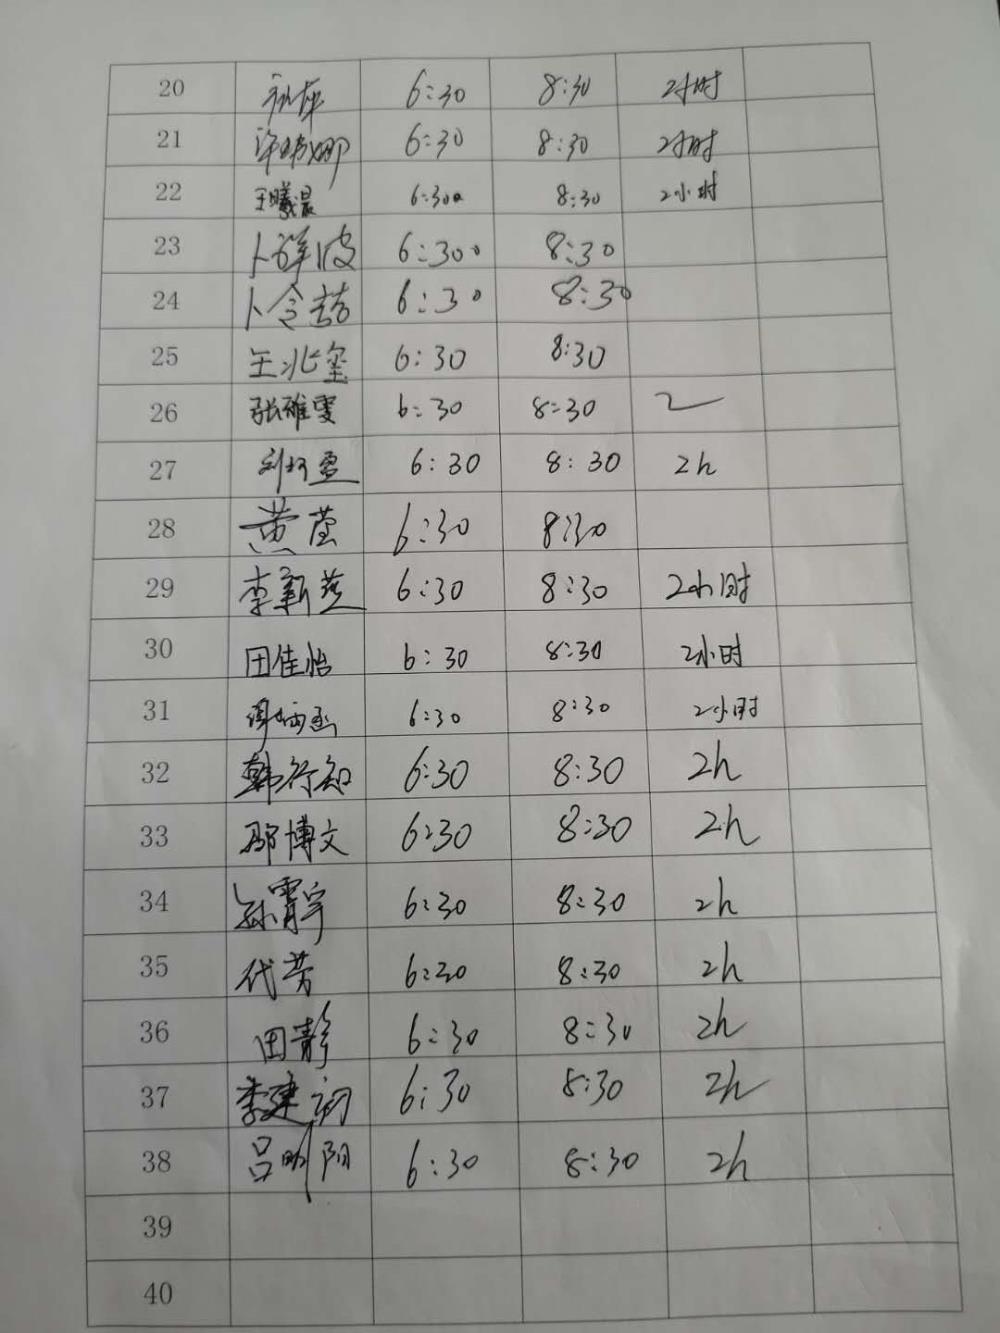 20 6:30 8:30 2小时
21 许晴娜 6:30 8:30 2小时
22 王曦晨 6:30 8:30 2小时
23 卜祥波 6:300 8:30
24 卜令喆 6:30 8:30
25 王兆玺 6:30 8:30
26 张雅雯 6:30 8:30 2
27 刘柯盈 6:30 8:30 2h
28 黄莹 6:30 8:30
29 李新燕 6:30 8:30 2小时
30 田佳怡 6:30 8:30 2小时
31 6:30 8:30 2小时
32 韩行知 6:30 8:30 2h
33 邵博文 6:30 8:30 2h
34 孙霄宇 6:30 8:30 2h
35 代芳 6:30 8:30 2h
36 田静 6:30 8:30 2h
37 李建初 6:30 8:30 2h
38 吕明阳 6:30 8:30 2h
39
40